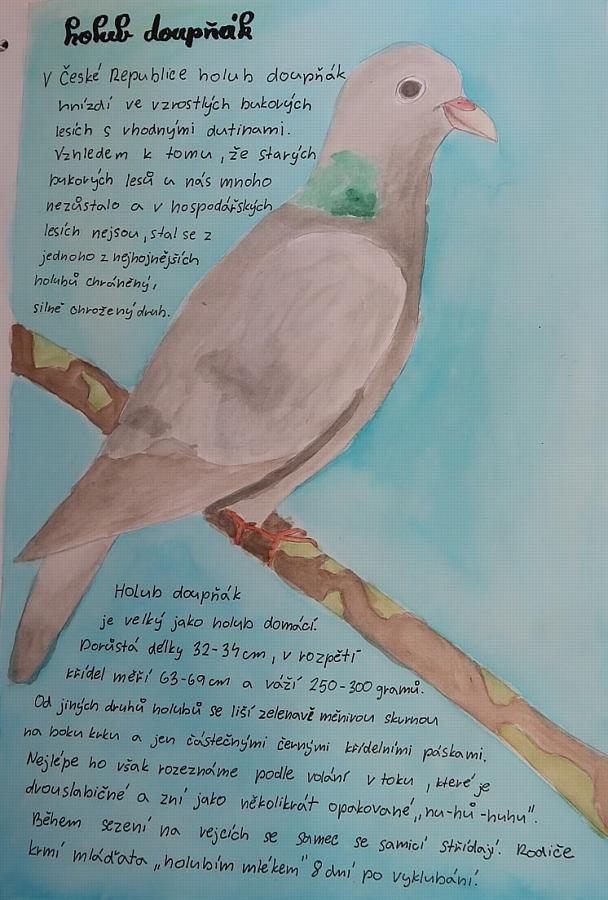 holub doupňák
V České Republice holub doupňák
hnízdí ve vzrostlých bukových
lesích s vhodnými dutinami.
Vzhledem k tomu, že starých
bukových lesů u nás mnoho
nezůstalo a v hospodářských
lesích nejsou, stal se z
jednoho z nejhojnějších
holubů chráněný,
silně ohrožený druh.
Holub doupňák
je velký jako holub domácí.
Dorůstá délky 32-34cm, v rozpětí
křídel měří 63-69cm a váží 250-300 gramů.
Od jiných druhů holubů se liší zelenavě měnivou skvrnou
na boku krku a jen částečnými černými křídelními páskami.
Nejlépe ho však rozeznáme podle volání v toku, které je
dvouslabičné a zní jako několikrát opakované „nu-hů-huhu".
Během sezení na vejcích se samec se samicí střídají. Rodiče
krmí mláďata „holubím mlékem" 8 dní po vyklubání.